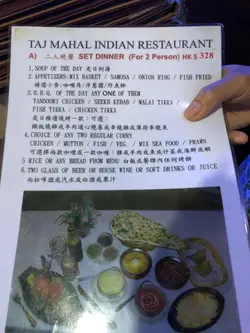 TAJ MAHAL INDIAN RESTAURANT
A) 二人晚餐 SET DINNER (For 2 Person) HK $ 328
1. SOUP OF THE DAY 是日例湯
2. APPETIZERS:MIX BASKET / SAMOSA / ONION RING / FISH FRIED
3. B.B.Q. OF THE DAY ANY ONE OF THEM
TANDOORI CHICKEN / SEEKH KEBAB / MALAI TIKKA /
FISH TIKKA / CHICKEN TIKKA
4. CHOICE OF ANY TWO REGULAR CURRY
CHICKEN / MUTTON / FISH / VEG. / MIX SEA FOOD / PRAWN
5 RICE OR ANY BREAD FROM MENU 白飯或餐牌內任何烤餅
6. TWO GLASS OF BEER OR HOUSE WINE OR SOFT DRINKS OR JUICE
兩杯啤酒或汽水或白酒或果汁